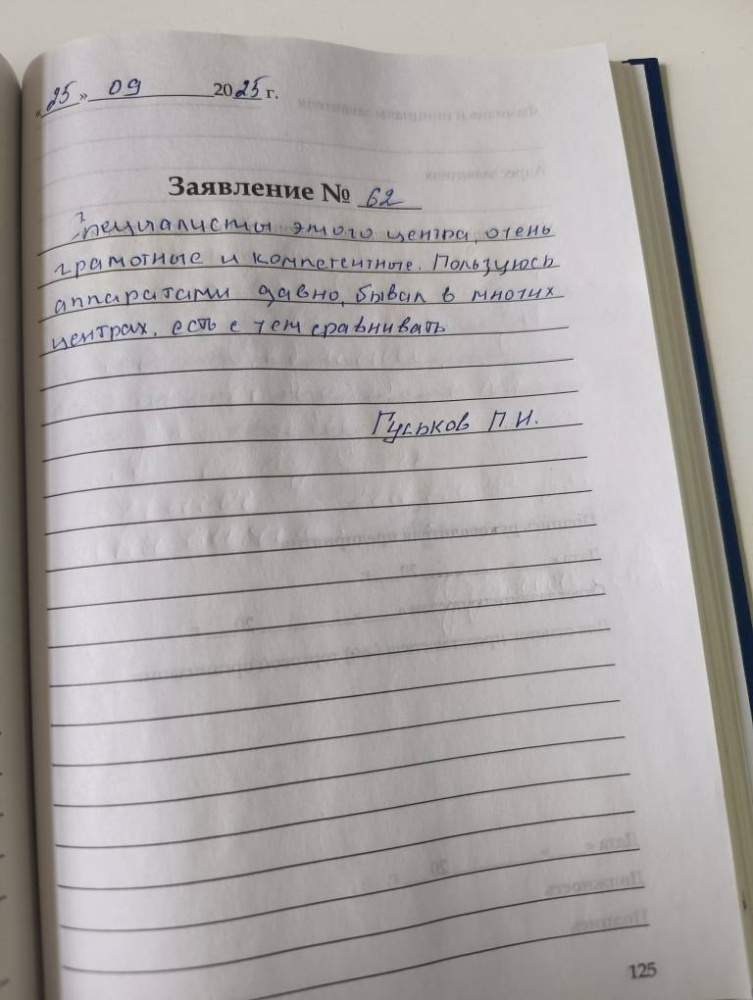 «25» 09 2025 г.
Заявление № 62
Специалисты этого центра, очень
грамотные и компетентные. Пользуюсь
аппаратами давно, бывал в многих
центрах, есть с чем сравнивать
Гуськов П.И.
125